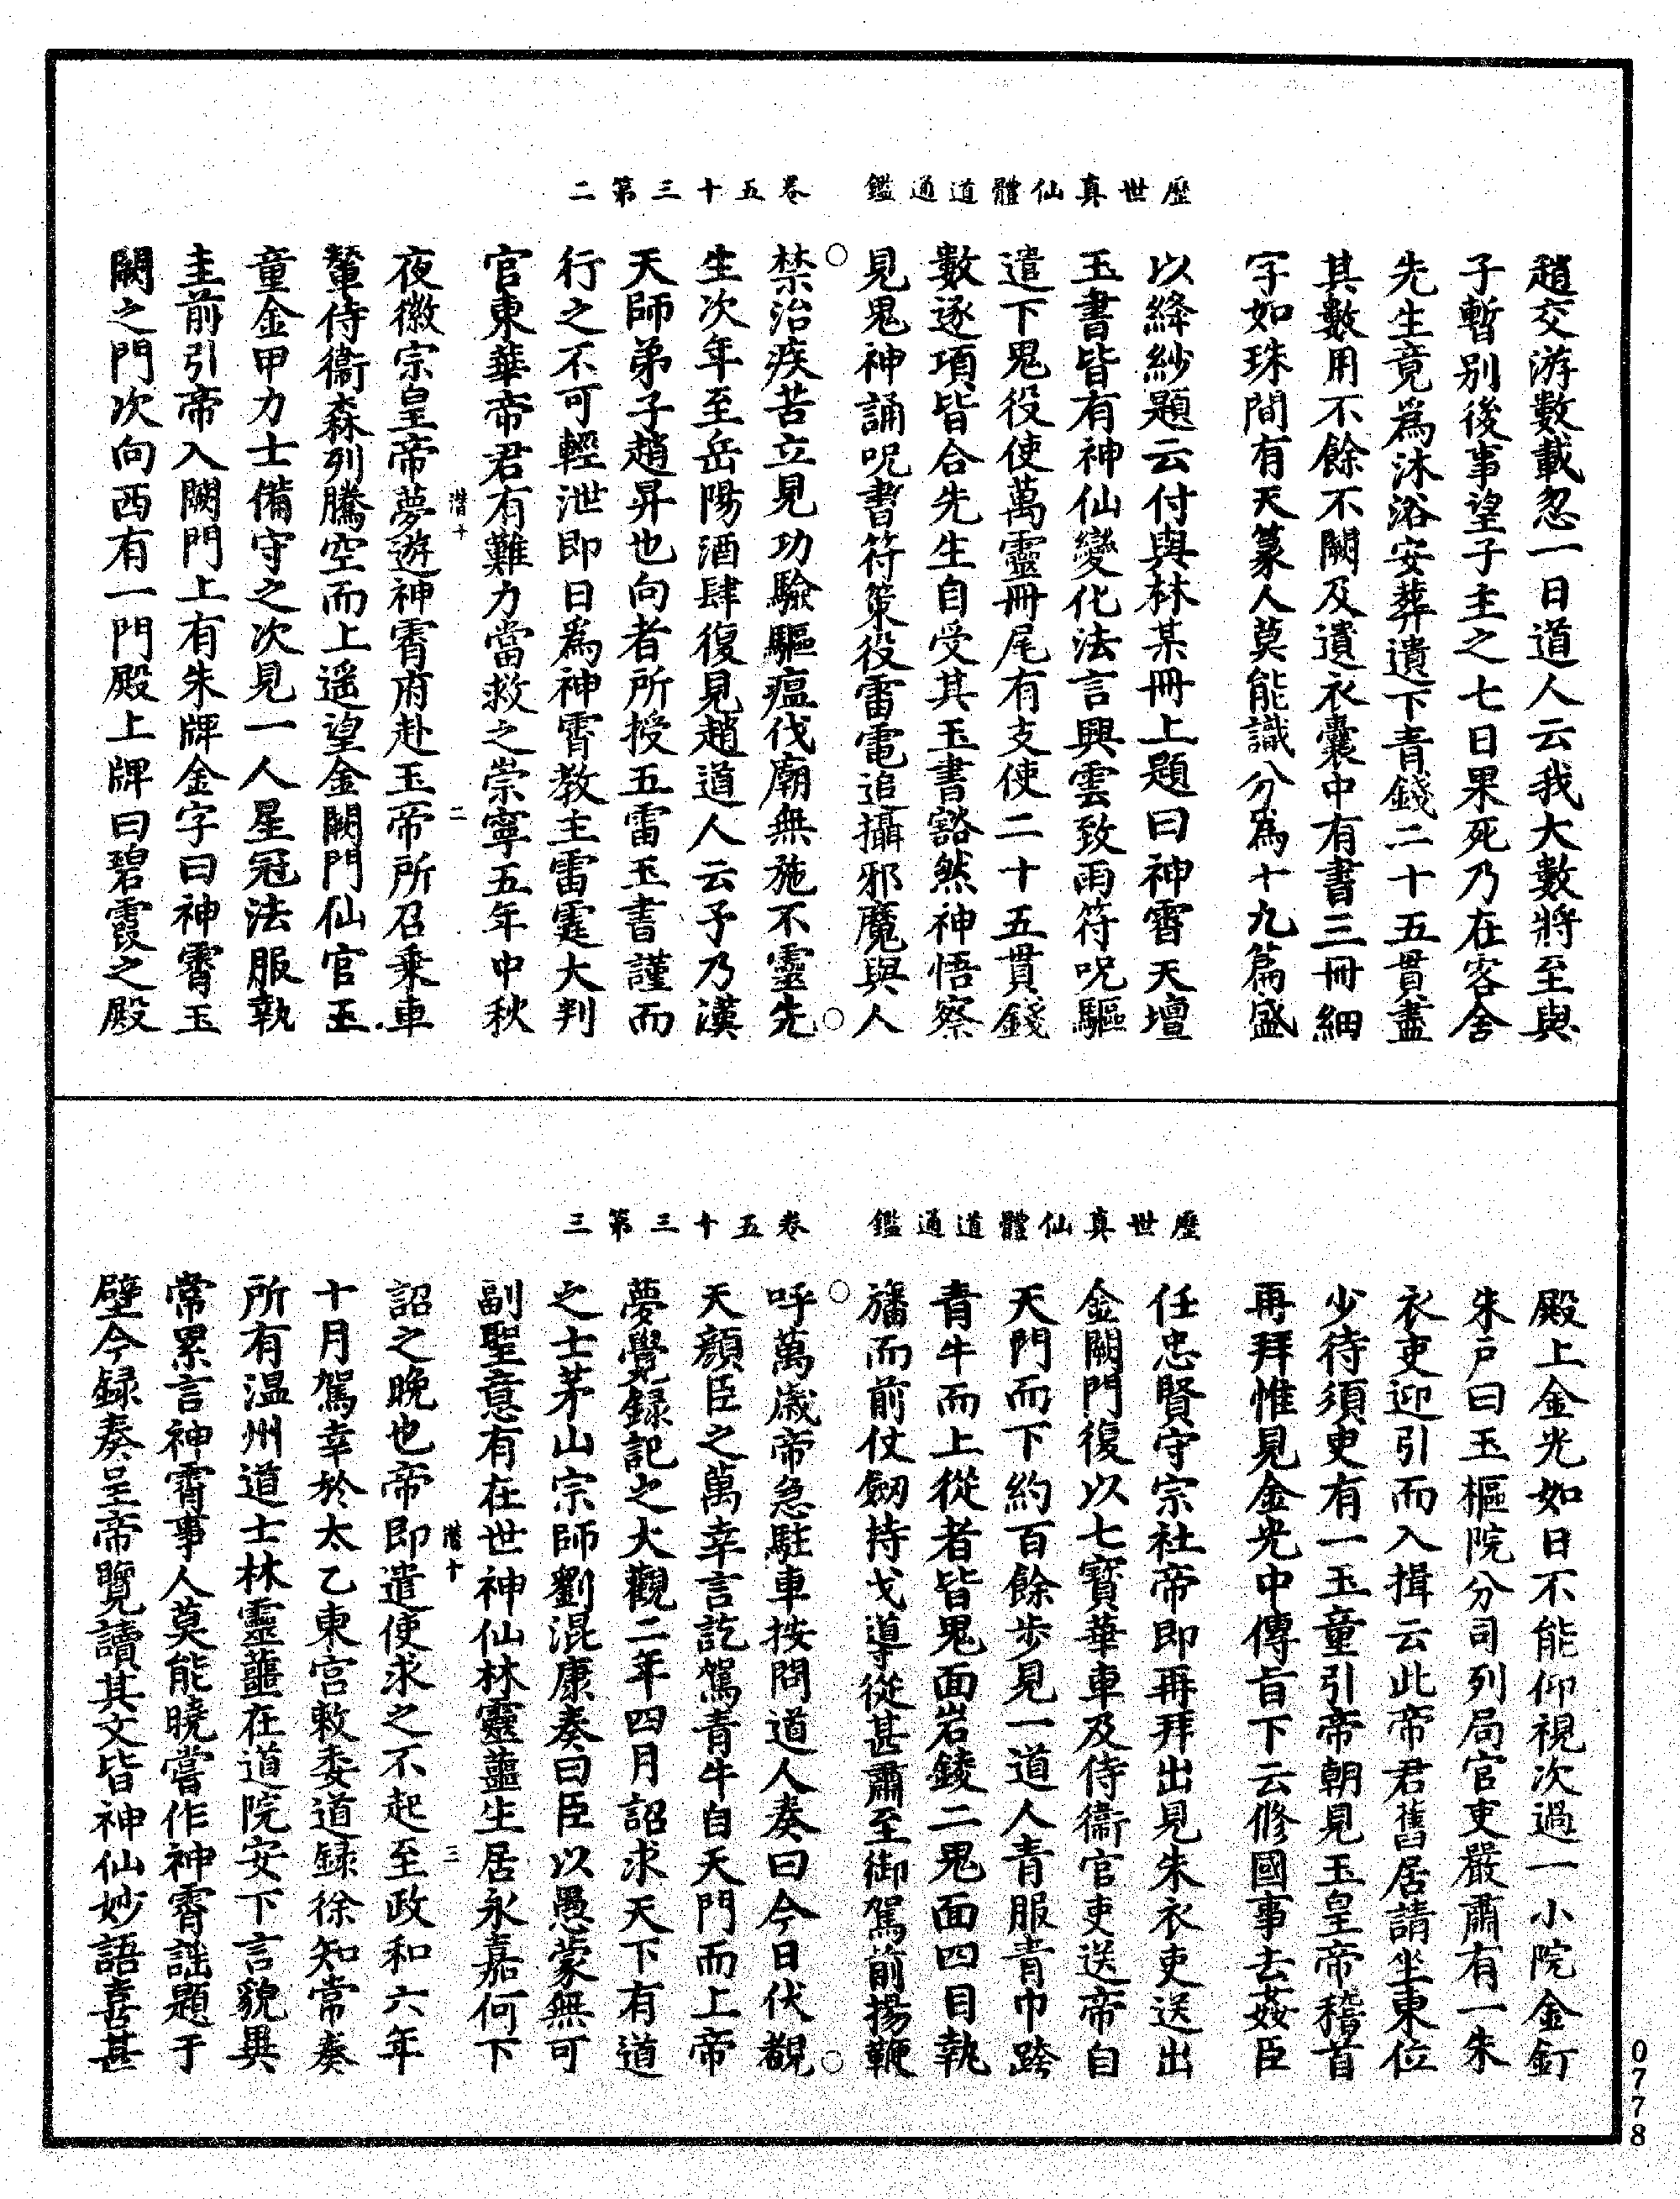 歷世真仙體道通鑑　卷五十三第二
趙交游數載忽一日道人云我大數將至與
子暫別後事望子主之七日果死乃在客舍
先生竟爲沐浴安葬遺下青錢二十五貫盡
其數用不餘不闕及遺衣囊中有書三冊細
字如珠間有天篆人莫能識分為十九篇盛
以絳紗題云付與林某冊上題曰神霄天壇
玉書皆有神仙變化法言興雲致雨符呪驅
遣下鬼役使萬靈冊尾有支使二十五貫錢
數逐項皆合先生自受其玉書豁然神悟察
見鬼神誦呪書符策役雷電追攝邪魔與人
禁治疾苦立見功驗驅瘟伐廟無施不靈先
生次年至岳陽酒肆復見趙道人云予乃漢
天師弟子趙昇也向者所授五雷玉書謹而
行之不可輕泄即日爲神霄教主雷霆大判
官東華帝君有難力當救之崇寧五年中秋
潛十　二
夜徽宗皇帝夢遊神霄府赴玉帝所召乘車
輦侍衞森列騰空而上遥望金闕門仙官玉
童金甲力士備守之次見一人星冠法服執
圭前引帝入闕門上有朱牌金字曰神霄玉
闕之門次向西有一門殿上牌曰碧霞之殿
歷世真仙體道通鑑　卷五十三第三
殿上金光如日不能仰視次過一小院金釘
朱户曰玉樞院分司列局官吏嚴肅有一朱
衣吏迎引而入揖云此帝君舊居請坐東位
少待須臾有一玉童引帝朝見玉皇帝稽首
再拜惟見金光中傳旨下云修國事去姦臣
任忠賢守宗社帝即再拜出見朱衣吏送出
金闕門復以七寶華車及侍衞官吏送帝自
天門而下約百餘步見一道人青服青巾跨
青牛而上從者皆鬼面岩錂二鬼面四目執
旛而前仗劒持戈導從甚肅至御駕前揚鞭
呼萬歲帝急駐車按問道人奏曰今日伏覩
天顏臣之萬幸言訖駕青牛自天門而上帝
夢覺録記之大觀二年四月詔求天下有道
之士茅山宗師劉混康奏曰臣以愚蒙無可
副聖意有在世神仙林靈蘁生居永嘉何下
潛十　三
詔之晚也帝即遣使求之不起至政和六年
十月駕幸於太乙東宮敕委道録徐知常奏
所有温州道士林靈蘁在道院安下言貌異
常累言神霄事人莫能曉嘗作神霄謡題于
壁今録奏呈帝覽讀其文皆神仙妙語喜甚
0778